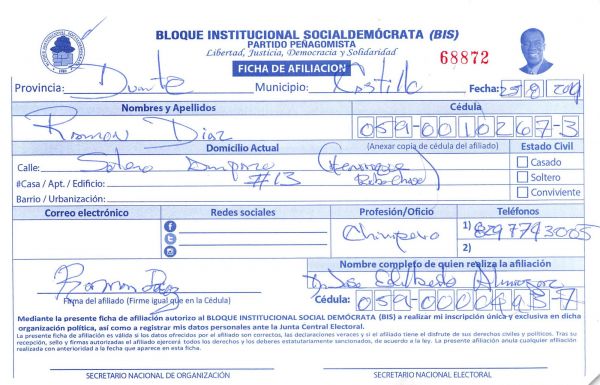 BLOQUE INSTITUCIONAL SOCIALDEMÓCRATA (BIS)
PARTIDO PEÑAGOMISTA
Libertad, Justicia, Democracia y Solidaridad
FICHA DE AFILIACION
68872
Provincia: Duarte Municipio: Castillo Fecha:
Nombres y Apellidos Cédula
Ramon Diaz 059-0010267-3
Domicilio Actual (Anexar copia de cédula del afiliado) Estado Civil
Calle: Casado
#Casa / Apt. / Edificio: #13 Soltero
Barrio / Urbanización: Conviviente
Correo electrónico Redes sociales Profesión/Oficio Teléfonos
1) 8297743005
2)
Nombre completo de quien realiza la afiliación
Ramon Diaz
Firma del afiliado (Firme igual que en la Cédula) Cédula:
Mediante la presente ficha de afiliación autorizo al BLOQUE INSTITUCIONAL SOCIAL DEMÓCRATA (BIS) a realizar mi inscripción única y exclusiva en dicha
organización política, así como a registrar mis datos personales ante la Junta Central Electoral.
La presente ficha de afiliación es válida si los datos ofrecidos por el afiliado son correctos, las declaraciones veraces y si el afiliado tiene el disfrute de sus derechos civiles y políticos. Tras su
recepción, sello y firmas autorizadas el afiliado ejercerá todos los derechos y los deberes estatutariamente sancionados, de acuerdo a la ley. La presente afiliación anula cualquier afiliación
realizada con anterioridad a la fecha que aparece en esta ficha.
SECRETARIO NACIONAL DE ORGANIZACIÓN SECRETARIO NACIONAL ELECTORAL